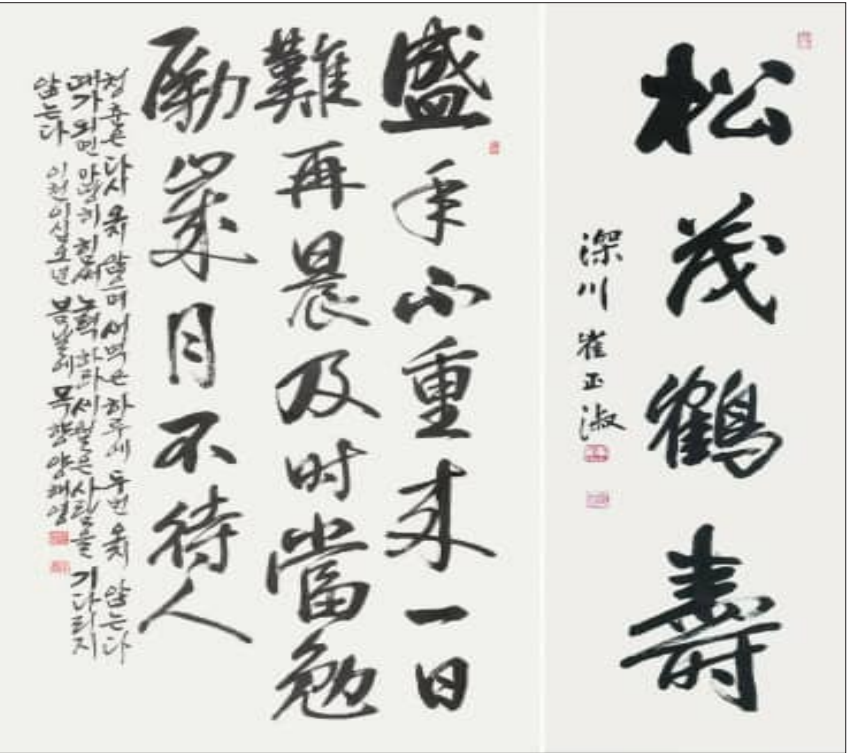 松茂鶴壽
深川 崔正淑
盛年不重来一日
難再晨及时當勉
勵歲月不待人
청춘은 다시 오지 않으며 새벽은 하루에 두번 오지 않는다
때가 되면 마땅히 힘써 노력하라 세월은 사람을 기다리지
않는다 이천이십오년 봄날에 목향 양해영